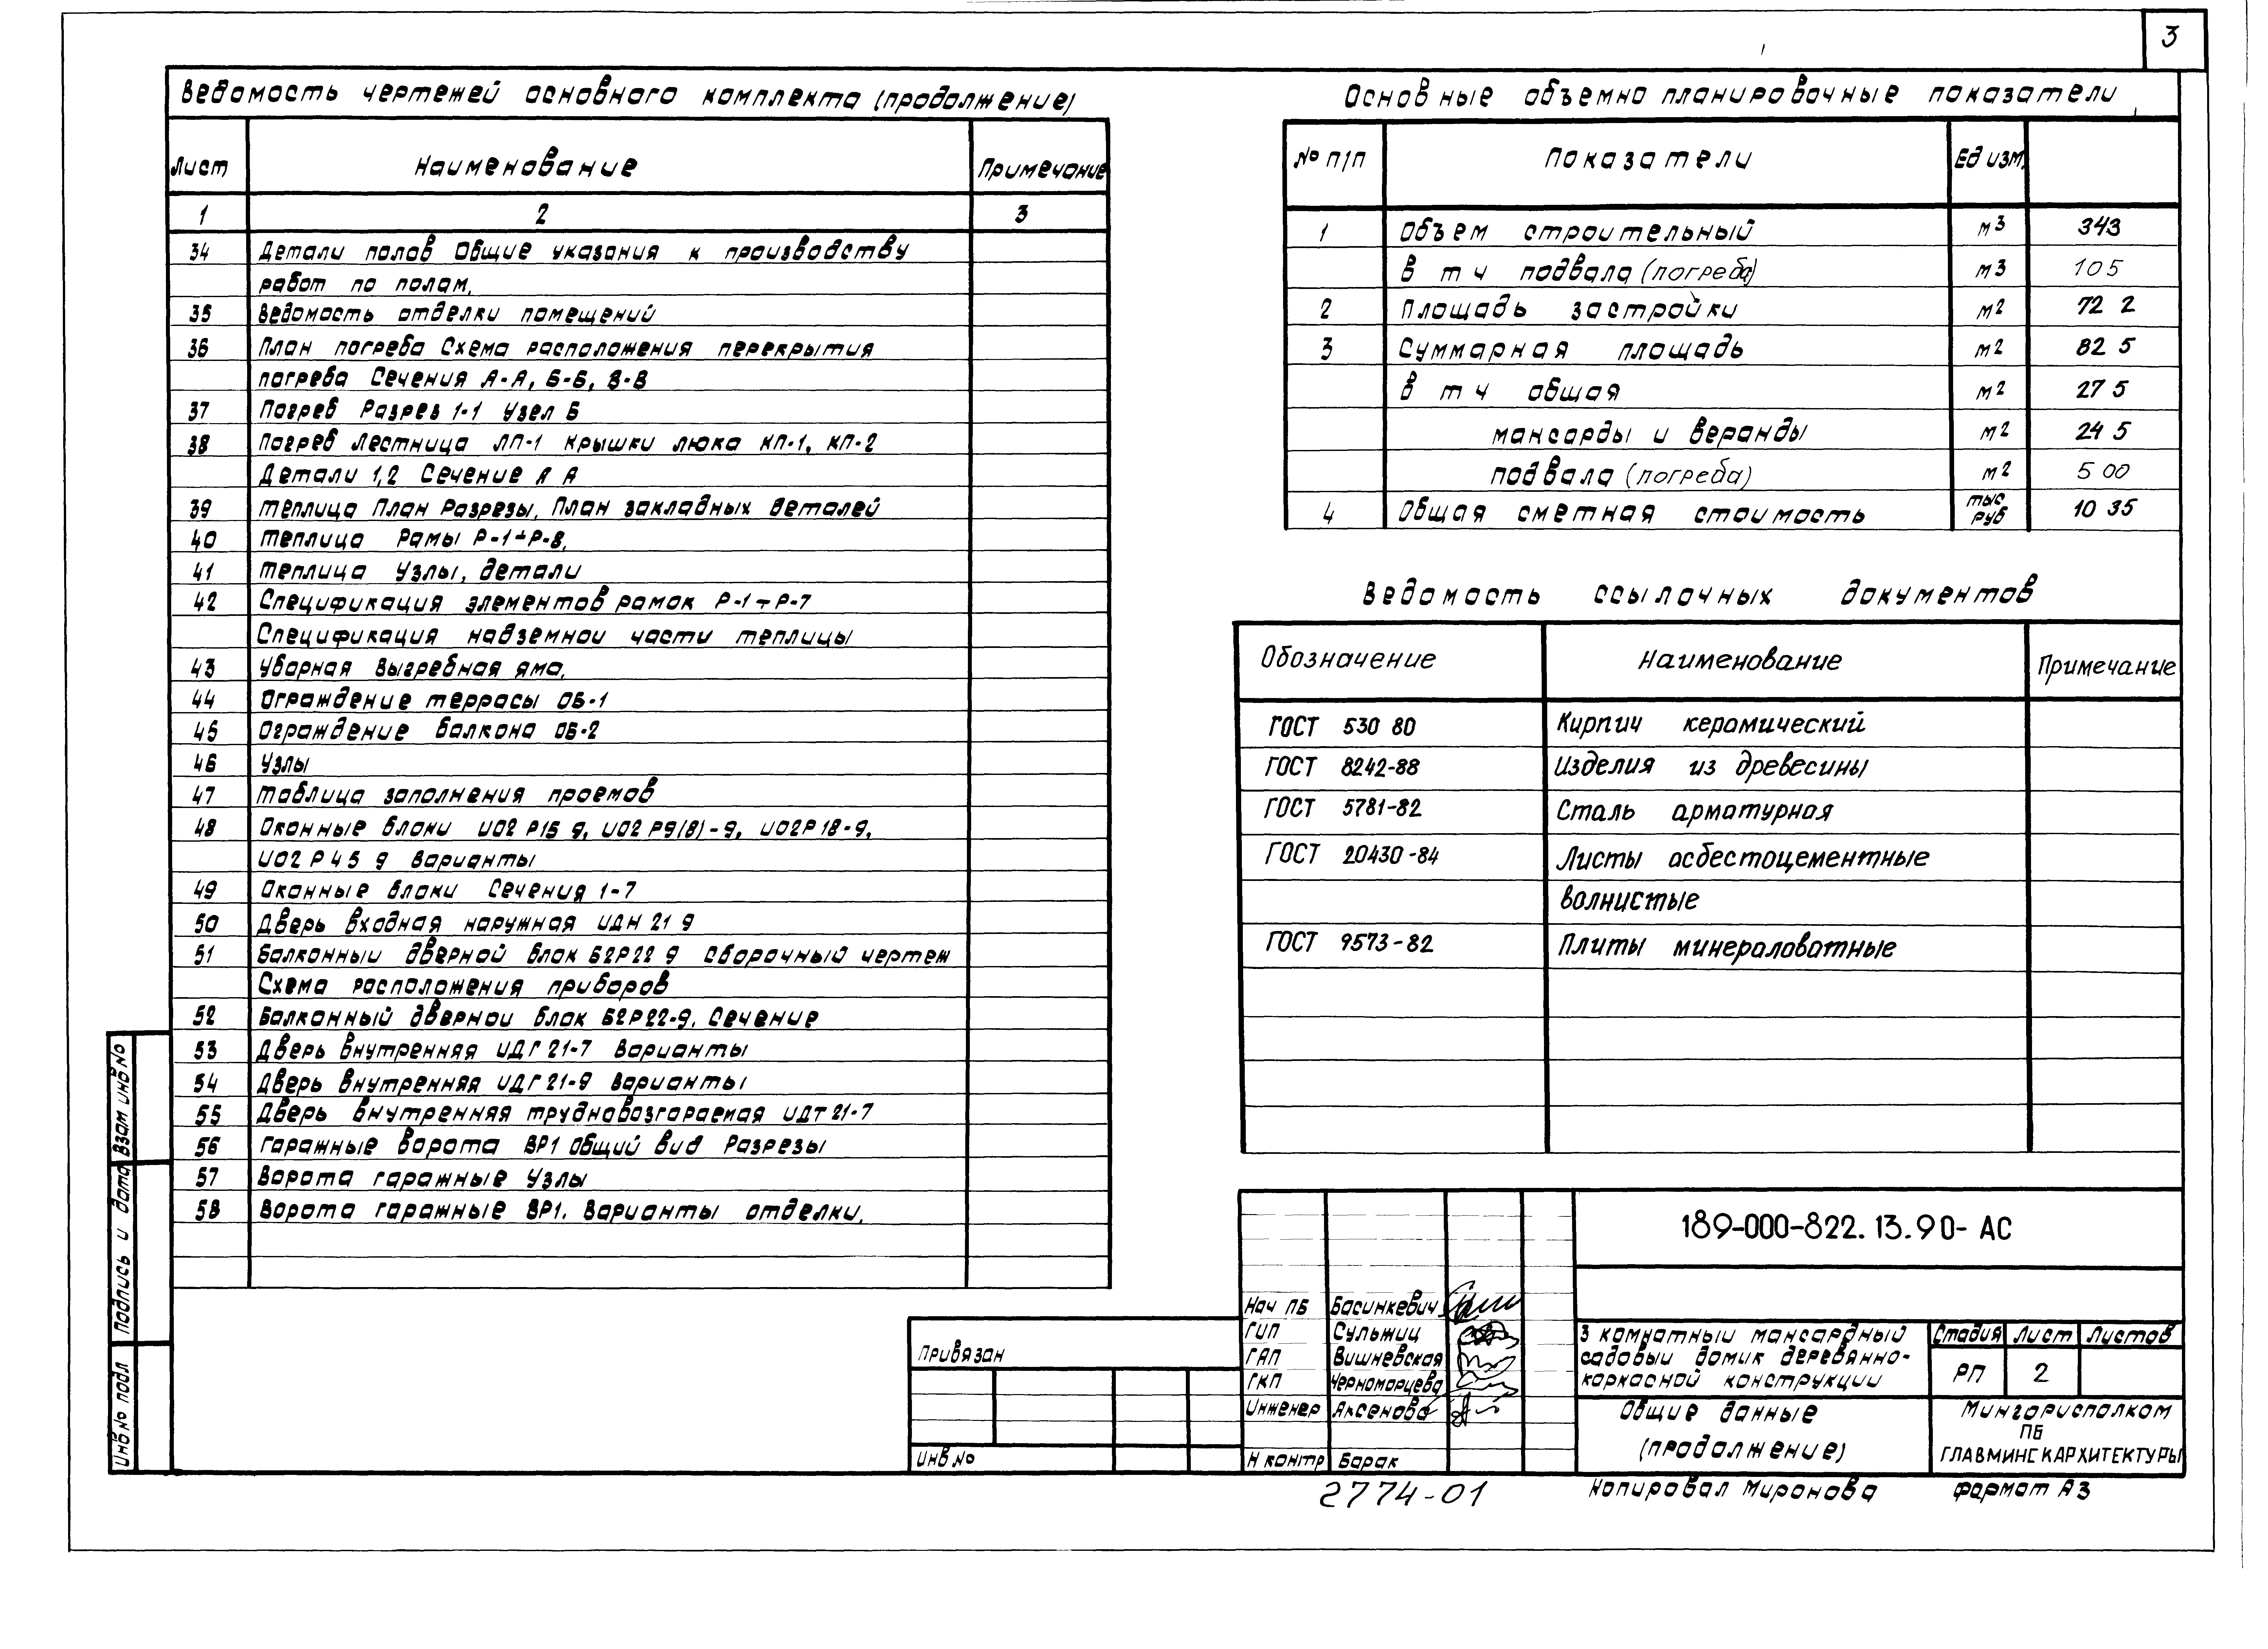 3
Ведомость чертежей основного комплекта (продолжение)
Лист Наименование Примечание
1 2 3
34 Детали полов Общие указания к производству
работ по полам.
35 Ведомость отделки помещений
36 План погреба Схема расположения перекрытия
погреба Сечения А-А, Б-Б, В-В
37 Погреб Разрез 1-1 Узел Б
38 Погреб Лестница ЛП-1 Крышки люка КП-1, КП-2
Детали 1,2 Сечение А А
39 Теплица План Разрезы. План закладных деталей
40 Теплица Рамы Р-1÷Р-8.
41 Теплица Узлы, детали
42 Спецификация элементов рамок Р-1÷Р-7
Спецификация надземнои части теплицы
43 Уборная Выгребная яма.
44 Ограждение террасы ОБ-1
45 Ограждение балкона ОБ-2
46 Узлы
47 Таблица заполнения проемов
48 Оконные блоки ИО2 Р15 9, ИО2 Р9(8)-9, ИО2Р18-9,
ИО2 Р45 9 Варианты
49 Оконные блоки Сечения 1-7
50 Дверь входная наружная ИДН 21 9
51 Балконныи дверной блок Б2Р22 9 Сборочный чертеж
Схема расположения приборов
52 Балконный двернои блок Б2Р22-9. Сечение
53 Дверь внутренняя ИДГ 21-7 Варианты
54 Дверь внутренняя ИДГ 21-9 Варианты
55 Дверь внутренняя трудновозгараемая ИДТ 21-7
56 Гаражные ворота ВР1 Общий вид Разрезы
57 Ворота гаражные Узлы
58 Ворота гаражные ВР1. Варианты отделки.
Основные объемно планировочные показатели
№ п/п Показатели Ед изм.
1 Объем строительный м3 343
в т ч подвала (погреба) м3 105
2 Площадь застройки м2 72 2
3 Суммарная площадь м2 82 5
в т ч общая м2 27 5
мансарды и веранды м2 24 5
подвала (погреба) м2 5 00
4 Общая сметная стоимость тыс руб 10 35
Ведомость ссылочных документов
Обозначение Наименование Примечание
ГОСТ 530 80 Кирпич керамический
ГОСТ 8242-88 Изделия из древесины
ГОСТ 5781-82 Сталь арматурная
ГОСТ 20430-84 Листы асбестоцементные
волнистые
ГОСТ 9573-82 Плиты минераловатные
Взам инв №
Подпись и дата
Инв № подл
Привязан
Инв №
189-000-822.13.90-АС
Нач ПБ Басинкевич
ГИП Сульжиц
ГАП Вишневская
ГКП Черноморцева
Инженер Аксенова
Н контр Барак
3 комнатныи мансардный
садовый домик деревянно-
каркасной конструкции
Стадия Лист Листов
РП 2
Общие данные
(продолжение)
Мингорисполком
ПБ
ГЛАВМИНСКАРХИТЕКТУРЫ
2774-01
Копировал Миронова
формат А3